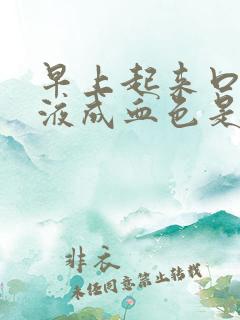 早上起来口
液成血色是
非衣
未经同意禁止转载